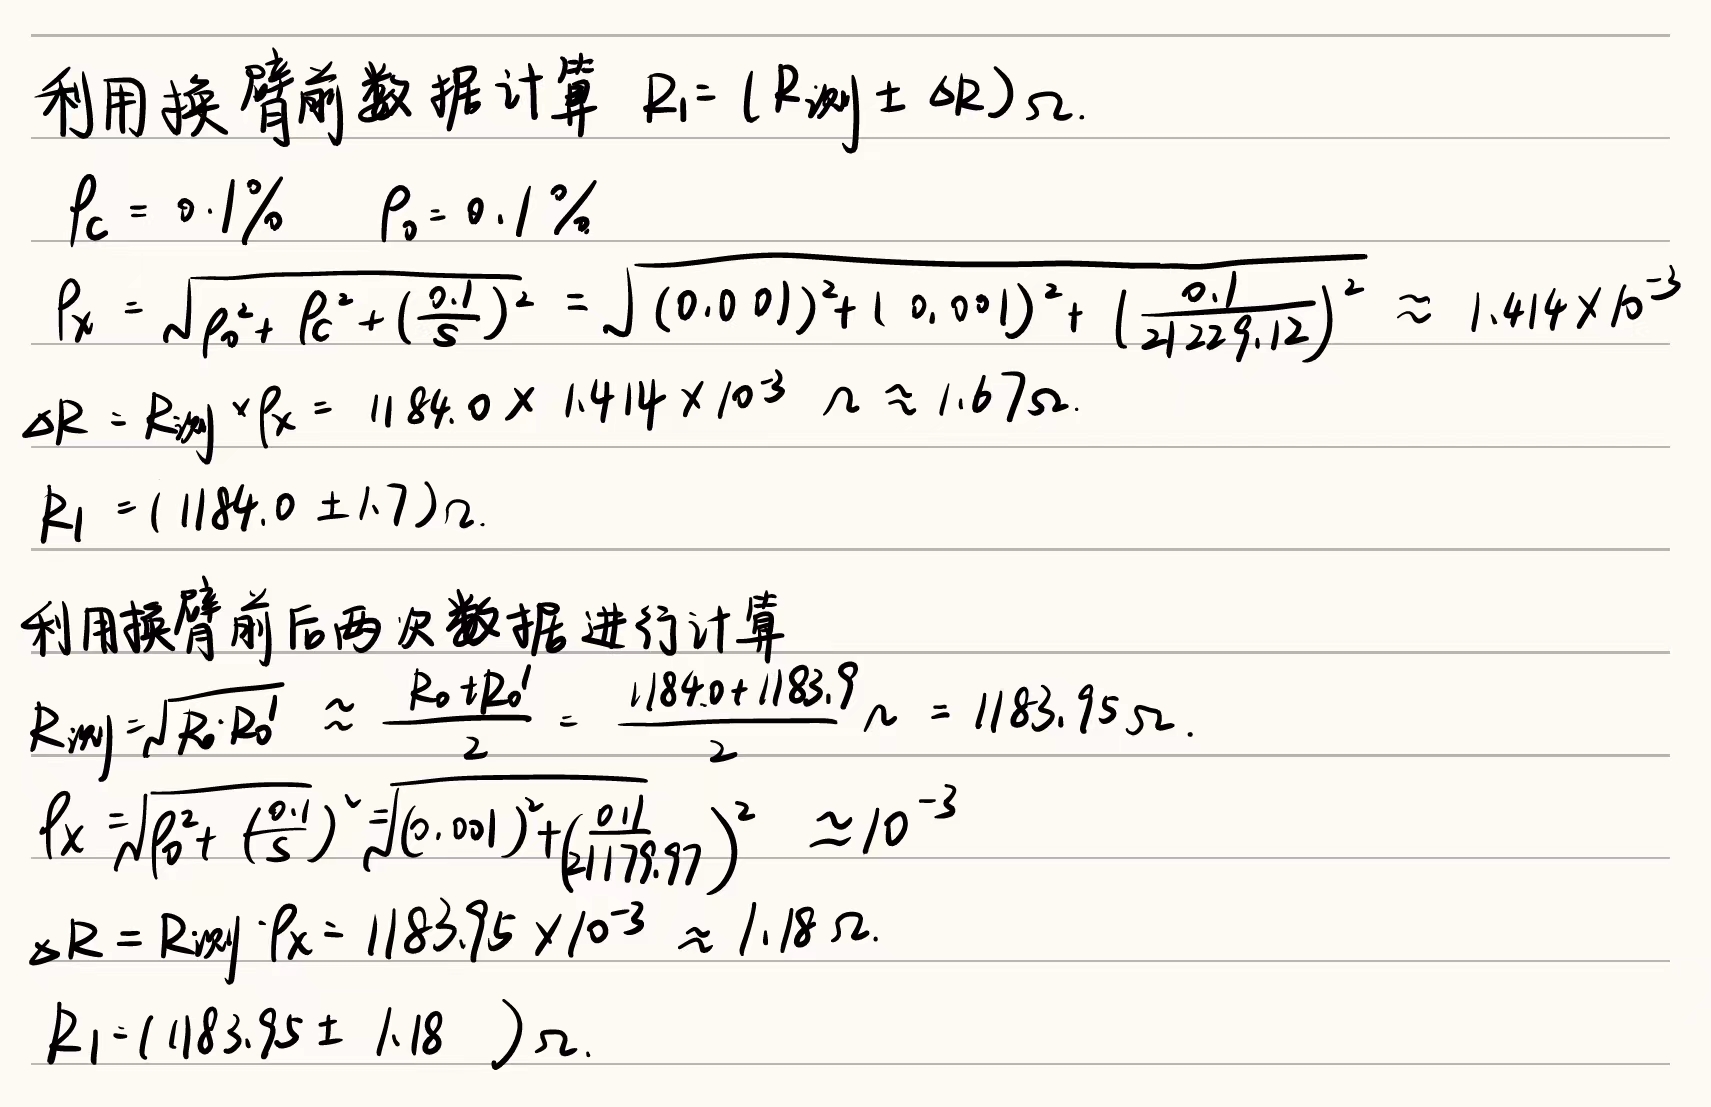 利用换臂前数据计算 R₁=(R测±ΔR)Ω.
ρc=0.1% ρ₀=0.1%
ρx=√(ρ₀²+ρc²+(0.1/S)²)=√((0.001)²+(0.001)²+(0.1/21229.12)²)≈1.414×10⁻³
ΔR=R测×ρx=1184.0×1.414×10⁻³Ω≈1.67Ω.
R₁=(1184.0±1.7)Ω.
利用换臂前后两次数据进行计算
R测=√(R₀·R₀')≈(R₀+R₀')/2=(1184.0+1183.9)/2Ω=1183.95Ω.
ρx=√(ρ₀²+(0.1/S)²)=√((0.001)²+(0.1/21179.97)²)≈10⁻³
ΔR=R测·ρx=1183.95×10⁻³≈1.18Ω.
R₁=(1183.95±1.18)Ω.